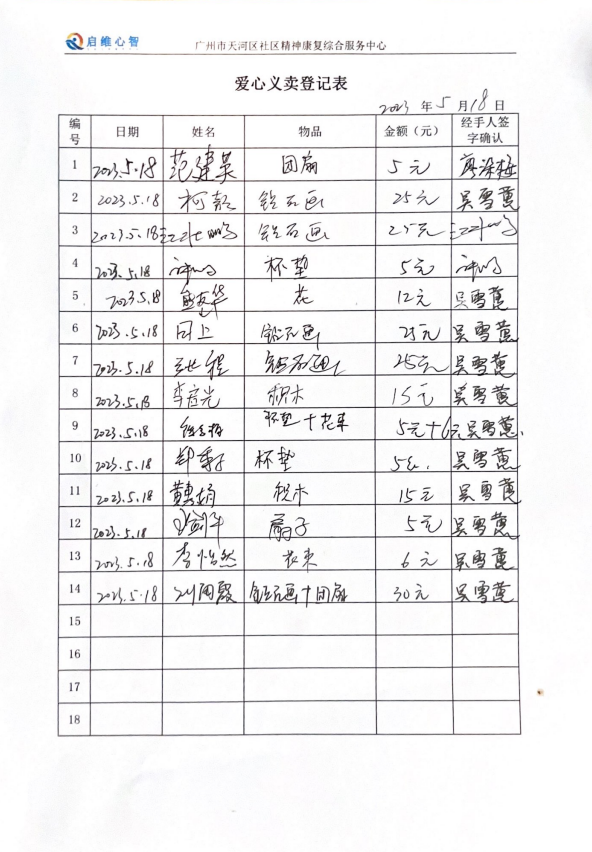 启维心智 广州市天河区社区精神康复综合服务中心
爱心义卖登记表
2023 年 5 月 18 日
编号 日期 姓名 物品 金额（元） 经手人签字确认
1 2023.5.18 范建昊 团扇 5元
2 2023.5.18 柯 钻石画 25元 吴雪蕙
3 2023.5.18 钻石画 25元
4 2023.5.18 杯垫 5元
5 2023.5.18 花 12元 吴雪蕙
6 2023.5.18 同上 钻石画 25元 吴雪蕙
7 2023.5.18 钻石画 25元 吴雪蕙
8 2023.5.18 李启光 积木 15元 吴雪蕙
9 2023.5.18 杯垫+花束 5元+6元 吴雪蕙
10 2023.5.18 杯垫 5元 吴雪蕙
11 2023.5.18 黄 积木 15元 吴雪蕙
12 2023.5.18 扇子 5元 吴雪蕙
13 2023.5.18 李怡然 花束 6元 吴雪蕙
14 2023.5.18 钻石画+团扇 30元 吴雪蕙
15
16
17
18